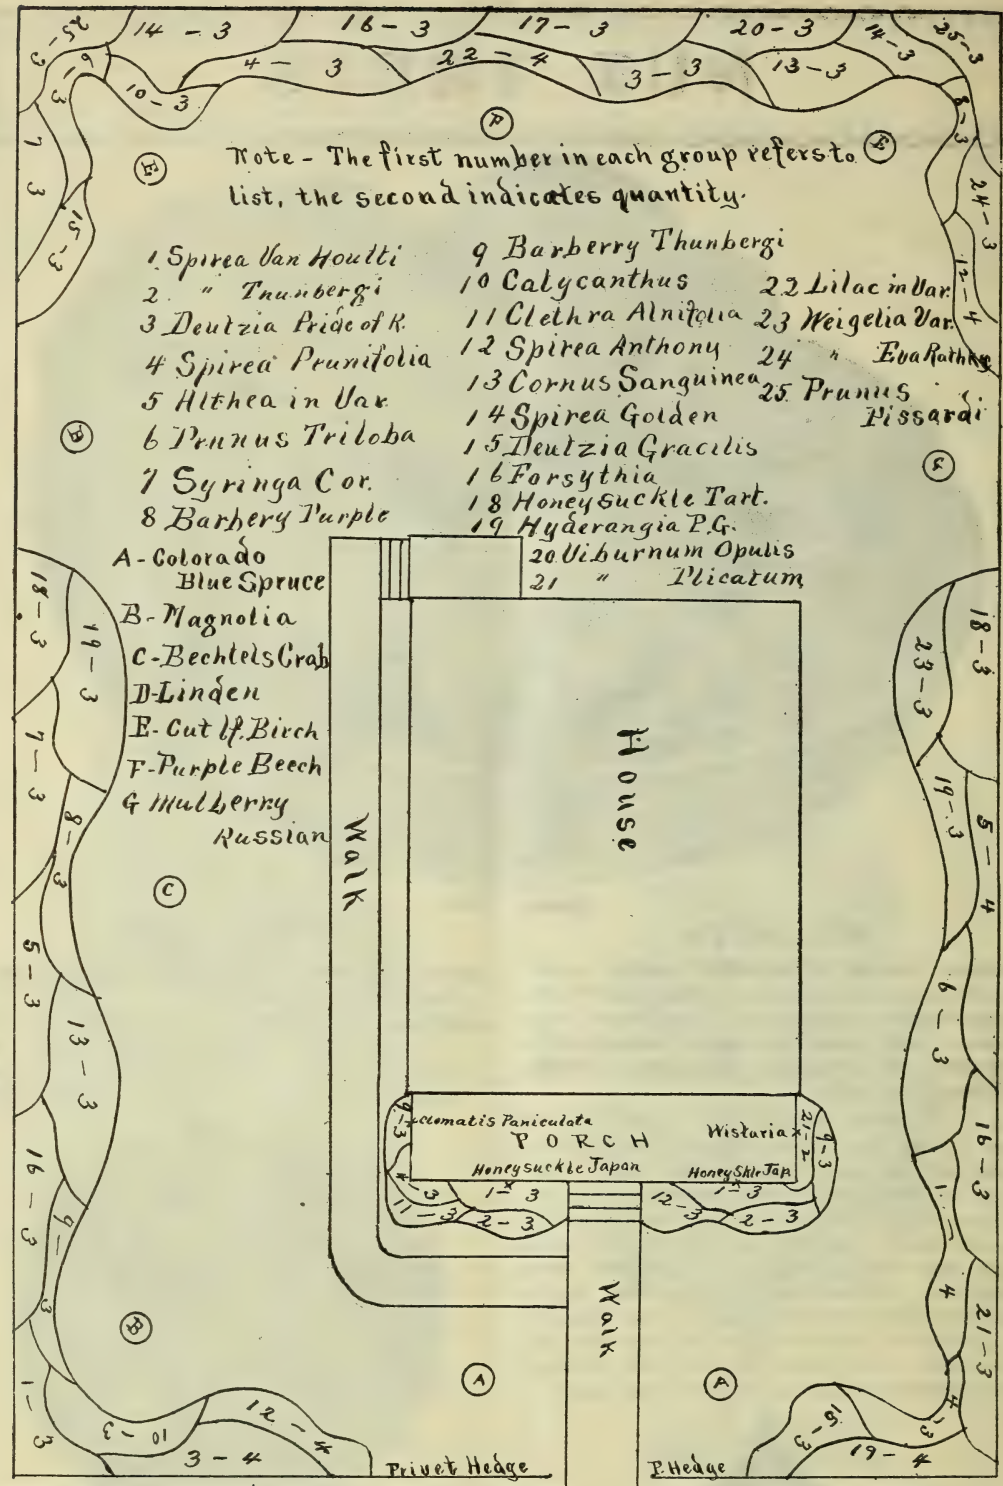 25-3 14-3 16-3 17-3 20-3 14-3 25-3
6-3 10-3 4-3 22-4 3-3 13-3 8-3
7-3
15-3
24-3
12-4
E F E
Note - The first number in each group refers to
list, the second indicates quantity.
1 Spirea Van Houtti
2 " Thunbergi
3 Deutzia Pride of R.
4 Spirea Prunifolia
5 Althea in Var.
6 Prunus Triloba
7 Syringa Cor.
8 Barbery Purple
9 Barberry Thunbergi
10 Calycanthus
11 Clethra Alnifolia
12 Spirea Anthony
13 Cornus Sanguinea
14 Spirea Golden
15 Deutzia Gracilis
16 Forsythia
18 Honeysuckle Tart.
19 Hyderangia P.G.
20 Viburnum Opulis
21 " Plicatum
22 Lilac in Var.
23 Weigelia Var.
24 " Eva Rathke
25 Prunus
Pissardi
B
G
A - Colorado
Blue Spruce
B - Magnolia
C - Bechtels Crab
D - Linden
E - Cut lf. Birch
F - Purple Beech
G Mulberry
Russian
18-3
19-3
7-3
8-3
C
5-3
13-3
16-3
9-3
B
1-3
10-3
12-4
3-4
Walk
House
18-3
23-3
19-3
5-4
6-3
16-3
1-4
21-3
4-3
15-3
19-4
9-3
Clomatis Paniculata
PORCH
Wistaria x
21-2
9-3
Honeysuckle Japan
Honey Skle Jap
x
x
4-3
1-3
11-3
2-3
12-3
1-3
2-3
Walk
A
A
Privet Hedge
P. Hedge